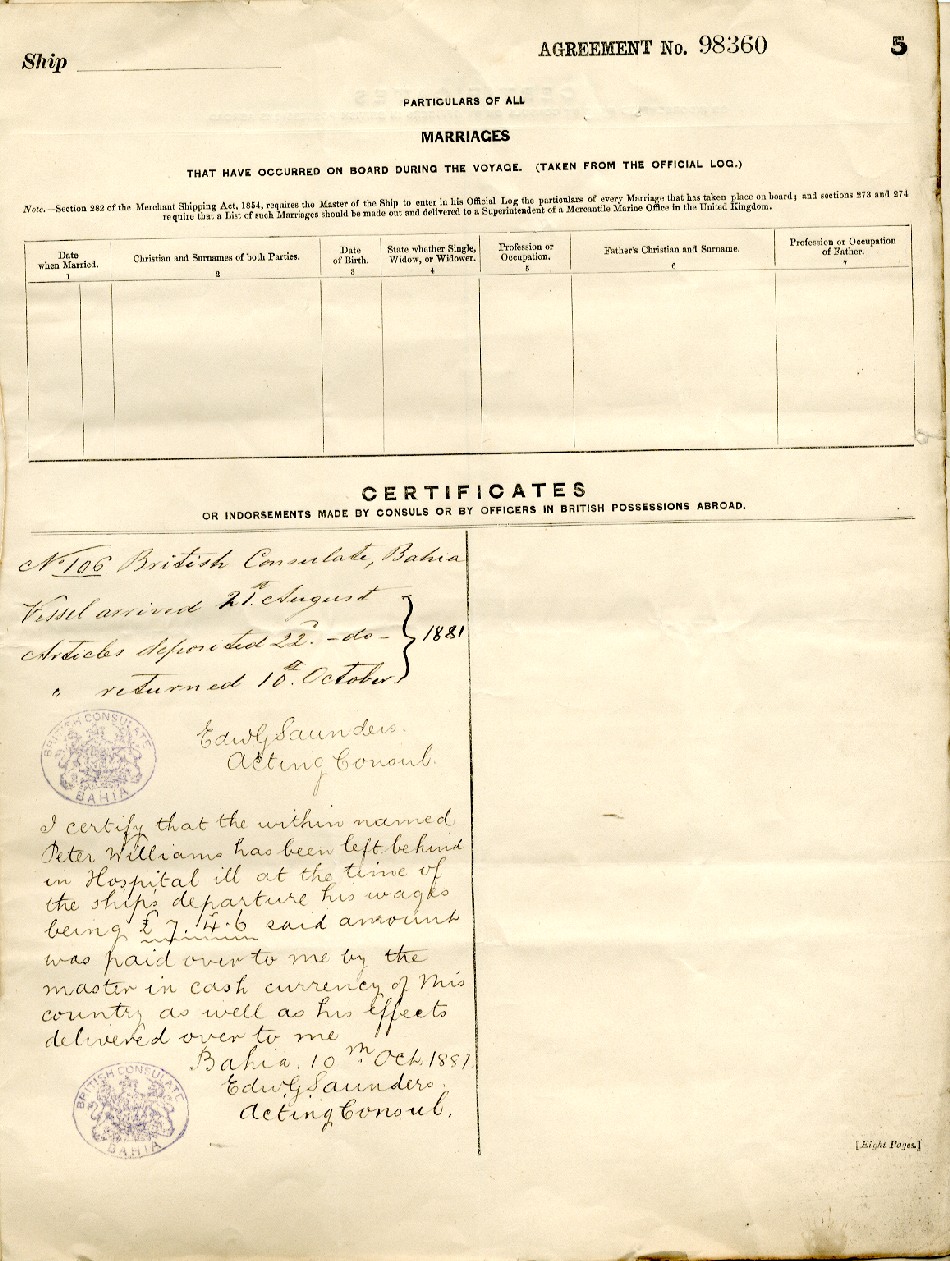 Ship
AGREEMENT No. 98360
5
PARTICULARS OF ALL
MARRIAGES
THAT HAVE OCCURRED ON BOARD DURING THE VOYAGE. (TAKEN FROM THE OFFICIAL LOG.)
Note.—Section 282 of the Merchant Shipping Act, 1854, requires the Master of the Ship to enter in his Official Log the particulars of every Marriage that has taken place on board; and sections 273 and 274
require that a List of such Marriages should be made out and delivered to a Superintendent of a Mercantile Marine Office in the United Kingdom.
Date
when Married.
1
Christian and Surnames of both Parties.
2
Date
of Birth.
3
State whether Single,
Widow, or Widower.
4
Profession or
Occupation.
5
Father's Christian and Surname.
6
Profession or Occupation
of Father.
7
CERTIFICATES
OR INDORSEMENTS MADE BY CONSULS OR BY OFFICERS IN BRITISH POSSESSIONS ABROAD.
No 106 British Consulate, Bahia
Vessel arrived 21st August
Articles deposited 22d. -do-
" returned 10th October
1881
EdwG Saunders.
Acting Consul.
BRITISH CONSULATE
BAHIA
I certify that the within named
Peter Williams has been left behind
in Hospital ill at the time of
the ships departure his wages
being £7.4.6 said amount
was paid over to me by the
master in cash currency of this
country as well as his effects
delivered over to me
Bahia. 10th Oct. 1881
EdwG Saunders.
Acting Consul.
BRITISH CONSULATE
BAHIA
[Eight Pages.]